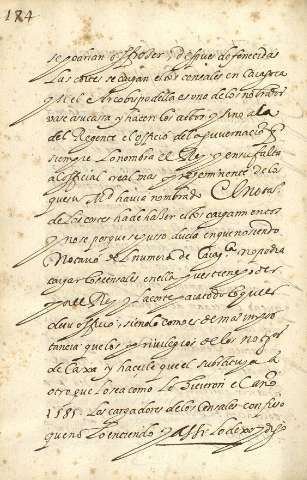 184
se podrian offrecer, despues de fenecidas
Las cortes se cargan estos censales en Caragoca
y si el Arcobispo della es uno de los nombrados
vase a su casa y hacen los actos y sino a la
del Regente el officio de la governacion
siempre Lo nombra el Rey y en su falta
al official real mas preeminente de la
que su Md havia nombrado. El Nota
de Las cortes ha de hazer estos cargamentos
y no se porque se puso duda en que no siendo
Notario de numero de Carag no podia
cargar Los censales en ella pues tiene poder
por el Rey y La corte para todo Lo que es
de su officio, siendo como es de mas impor
tancia que los privilegios de los notarios
de Caxa y hacerlo que el substituya a
otro que Lo sea como Lo hicieron el año
1585. Los cargadores de los Censales confieso
que no Lo entiendo y assi Lo dexo